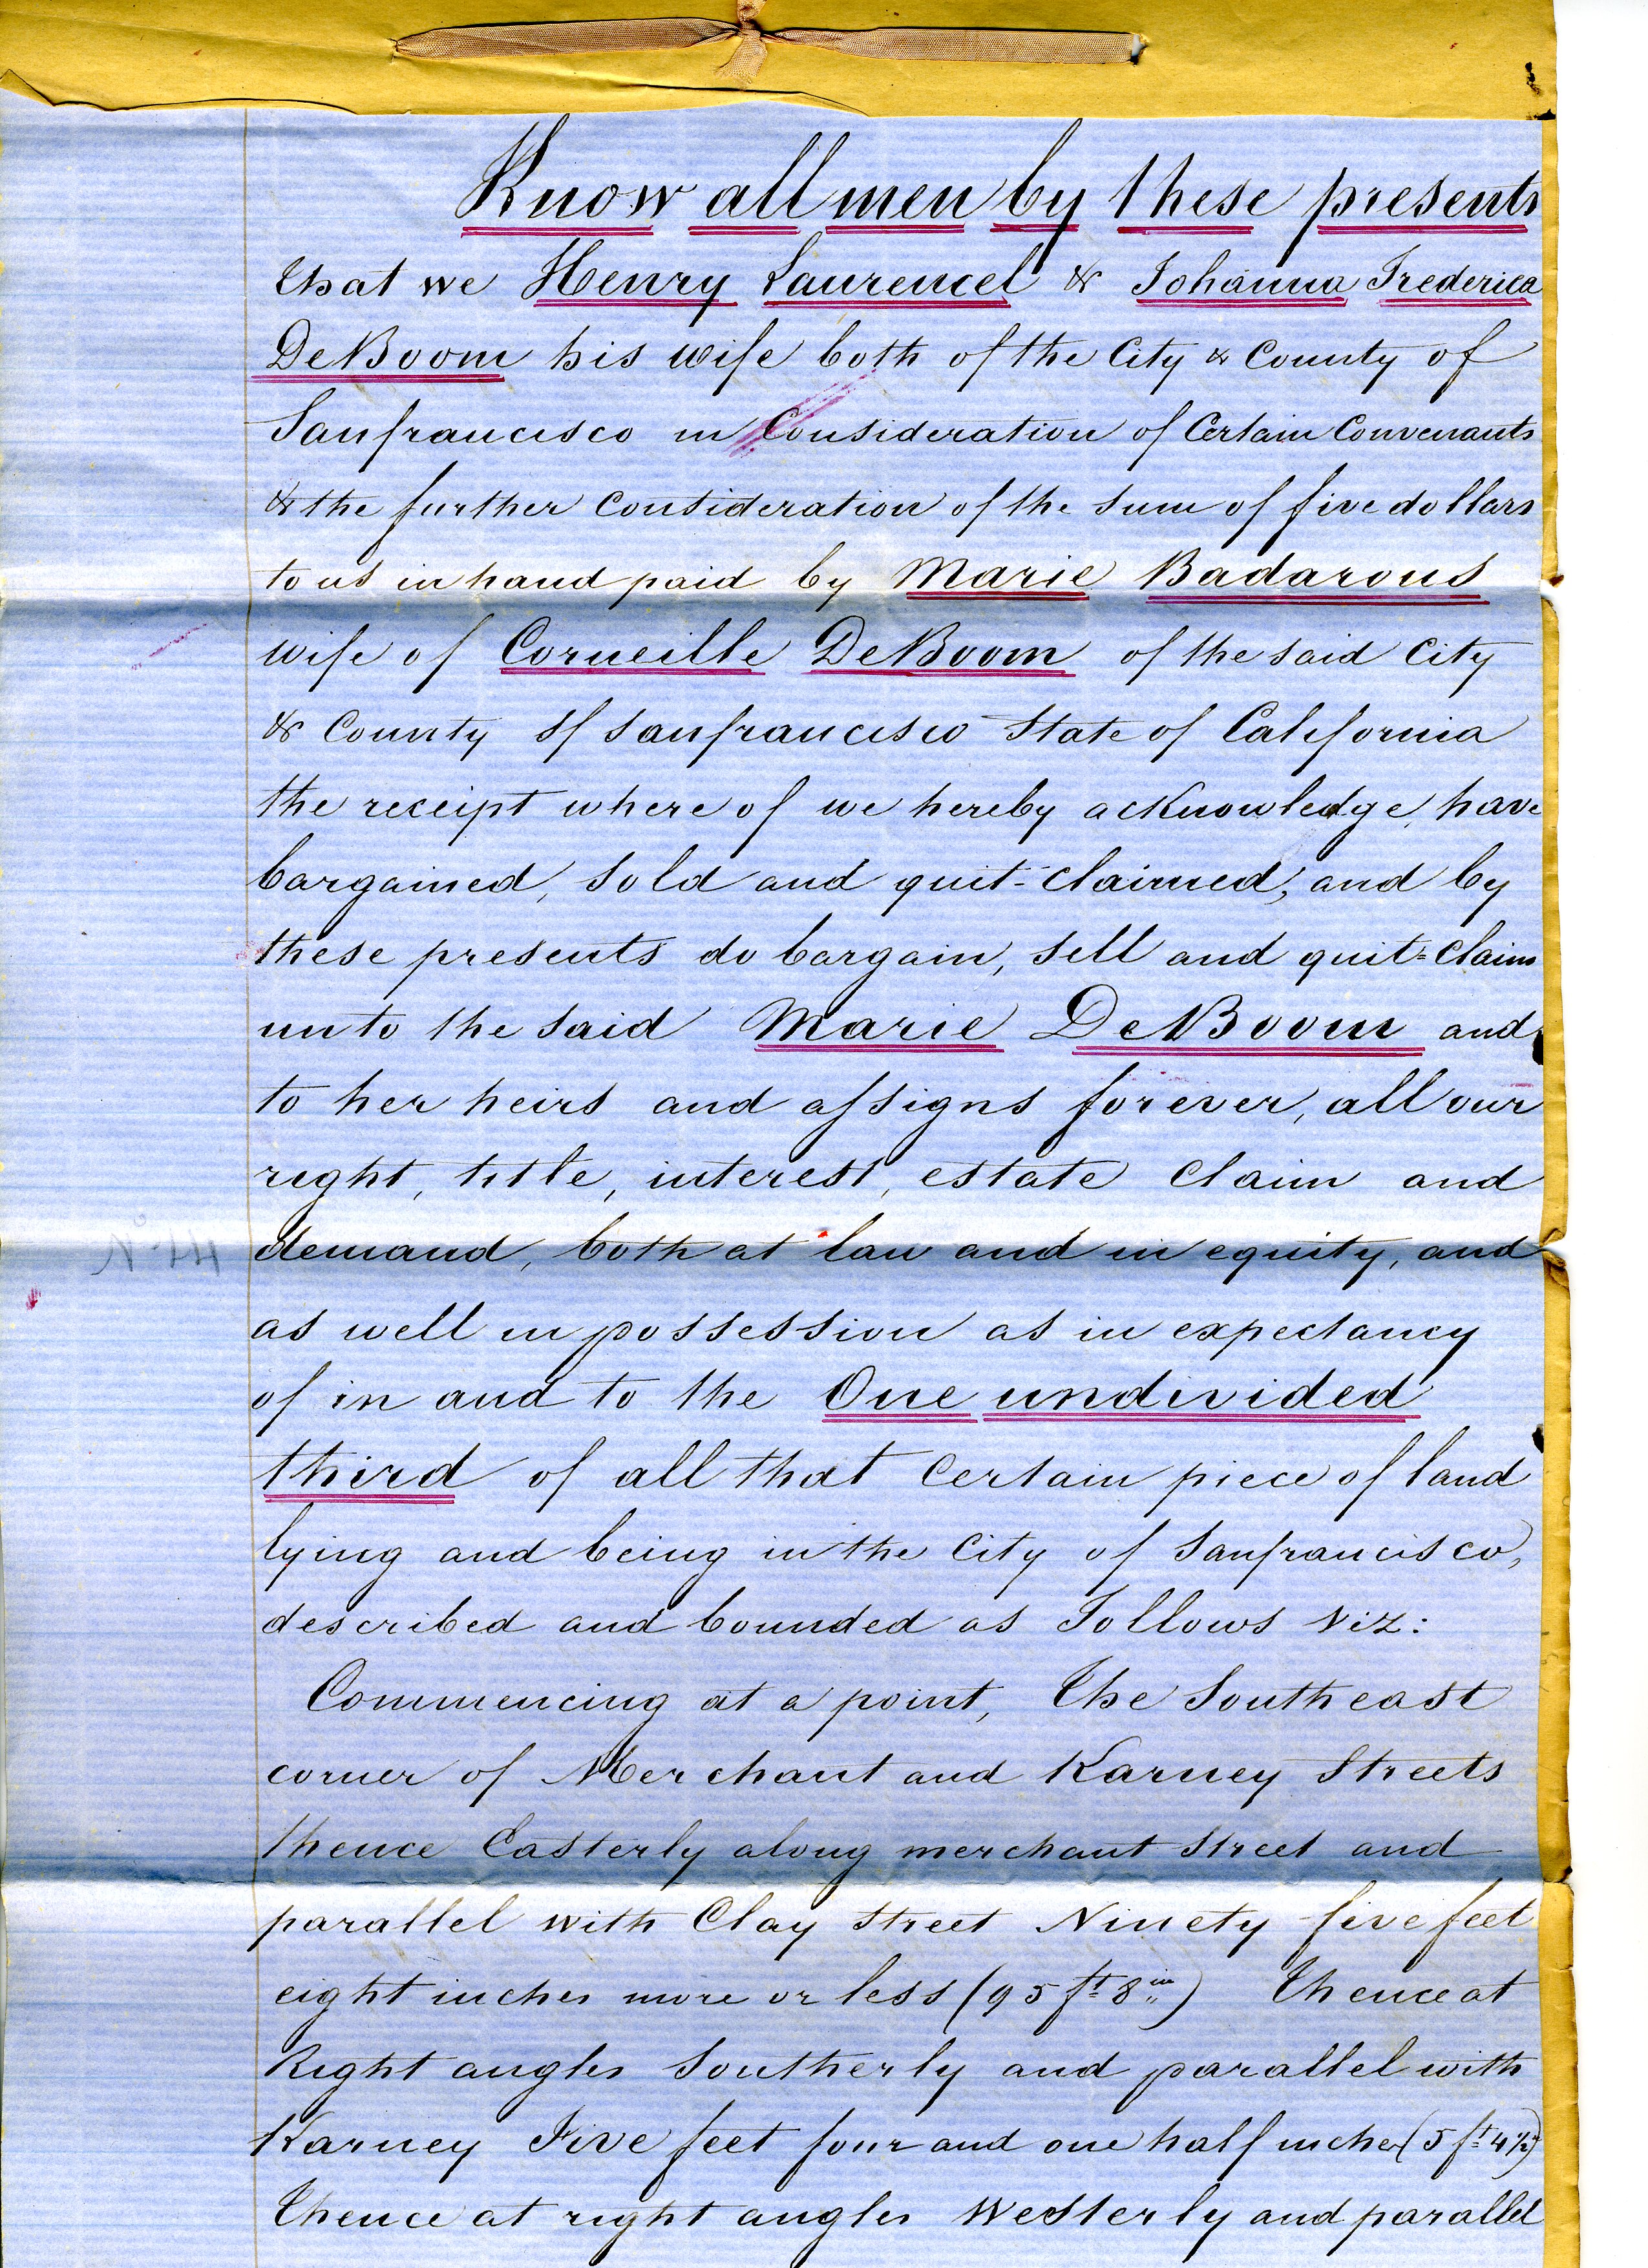 Know all men by these presents
that we Henry Laurencel & Johanna Frederica
DeBoom his wife both of the City & County of
Sanfrancisco in Consideration of Certain Convenants
& the further Consideration of the sum of five dollars
to us in hand paid by Marie Badarous
wife of Corneille DeBoom of the said City
& County of sanfrancisco State of California
the receipt where of we hereby acKnowledge, have
bargained, sold and quit-claimed, and by
these presents do bargain, sell and quit=claim
unto the said Marie DeBoom and
to her heirs and assigns forever, all our
right, title, interest, estate claim and
demand, both at law and in equity, and
as well in possession as in expectancy
of in and to the One undivided
third of all that certain piece of land
lying and being in the City of Sanfrancisco,
described and bounded as Follows viz:
Commencing at a point, The Southeast
corner of Merchant and Karney Streets
thence Easterly along merchant Street and
parallel with Clay street Ninety-five feet
eight inches more or less (95 ft 8 in) Thence at
Right angles Southerly and parallel with
Karney Five feet four and one half inches (5 ft 4½)
Thence at right angles Westerly and parallel